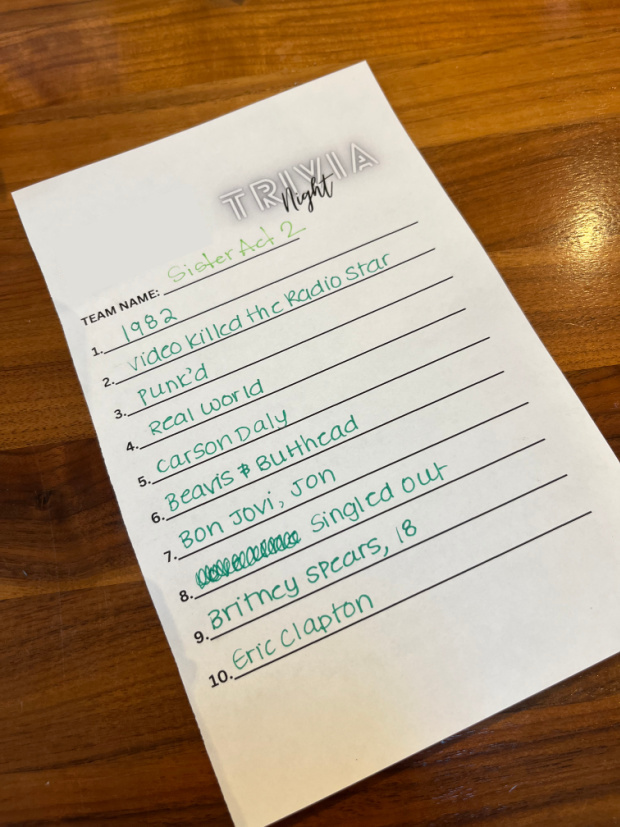 TRIVIA
Night
TEAM NAME: Sister Act 2
1. 1982
2. Video killed the Radio Star
3. Punk'd
4. Real World
5. Carson Daly
6. Beavis & Butthead
7. Bon Jovi, Jon
8. Singled out
9. Britney Spears, 18
10. Eric Clapton